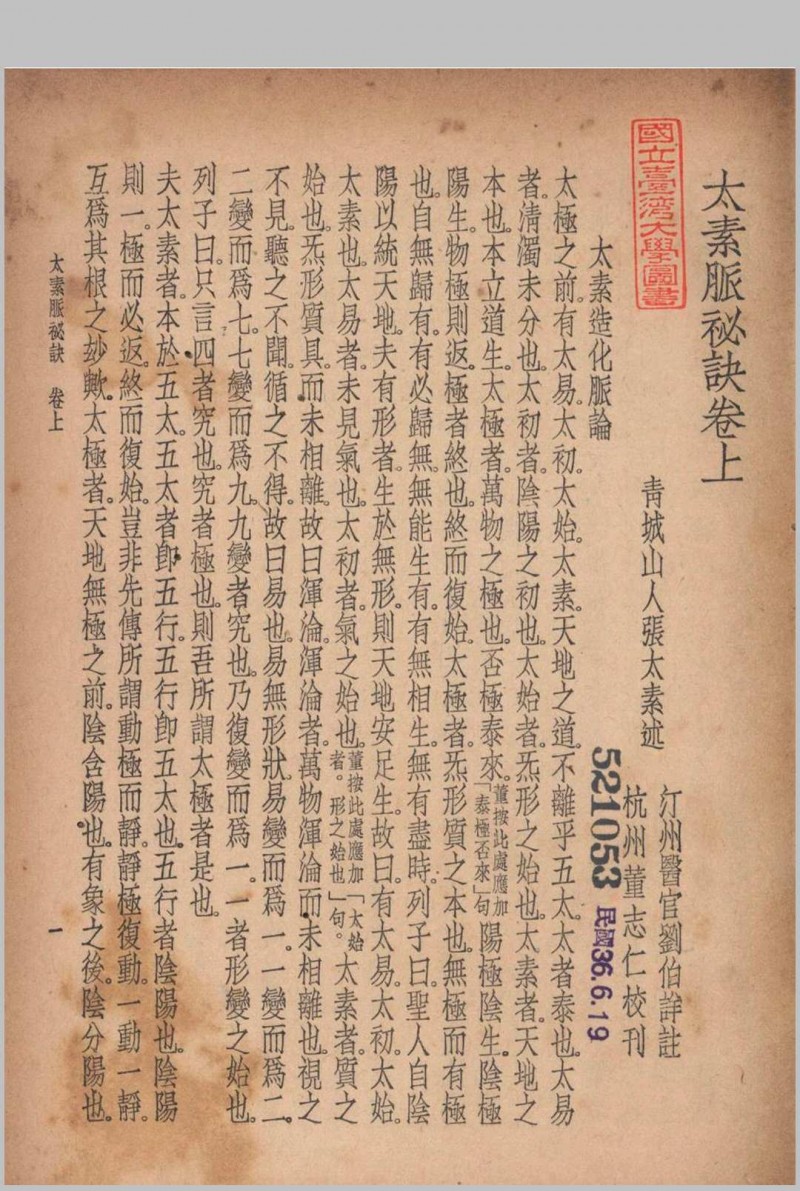 太素脈祕訣卷上
國立臺灣大學圖書
青城山人張太素述
汀州醫官劉伯詳註
杭州董志仁校刊
521053 民國36.6.19
太素造化脈論
太極之前。有太易。太初。太始。太素。天地之道。不離乎五太。太者泰也。太易
者。清濁未分也。太初者。陰陽之初也。太始者。炁形之始也。太素者。天地之
本也。本立道生。太極者。萬物之極也。否極泰來。董按此處應加「泰極否來」句陽極陰生。陰極
陽生。物極則返。極者終也。終而復始。太極者。炁形質之本也。無極而有極
也。自無歸有。有必歸無。無能生有。有無相生。無有盡時。列子曰。聖人自陰
陽以統天地。夫有形者。生於無形。則天地安足生。故曰。有太易。太初。太始。
太素也。太易者。未見氣也。太初者。氣之始也。董按此處應加「太始者。形之始也」句。太素者。質之
始也。炁形質具。而未相離。故曰渾淪。渾淪者。萬物渾淪而未相離也。視之
不見。聽之不聞。循之不得。故曰易也。易無形狀。易變而爲一。一變而爲二。
二變而爲七。七變而爲九。九變者究也。乃復變而爲一。一者形變之始也。
列子曰。只言四者究也。究者極也。則吾所謂太極者是也。
夫太素者。本於五太。五太者卽五行。五行卽五太也。五行者陰陽也。陰陽
則一。極而必返。終而復始。豈非先傳所謂動極而靜。靜極復動。一動一靜。
互爲其根之玅歟。太極者。天地無極之前。陰含陽也。有象之後。陰分陽也。
太素脈祕訣 卷上
一